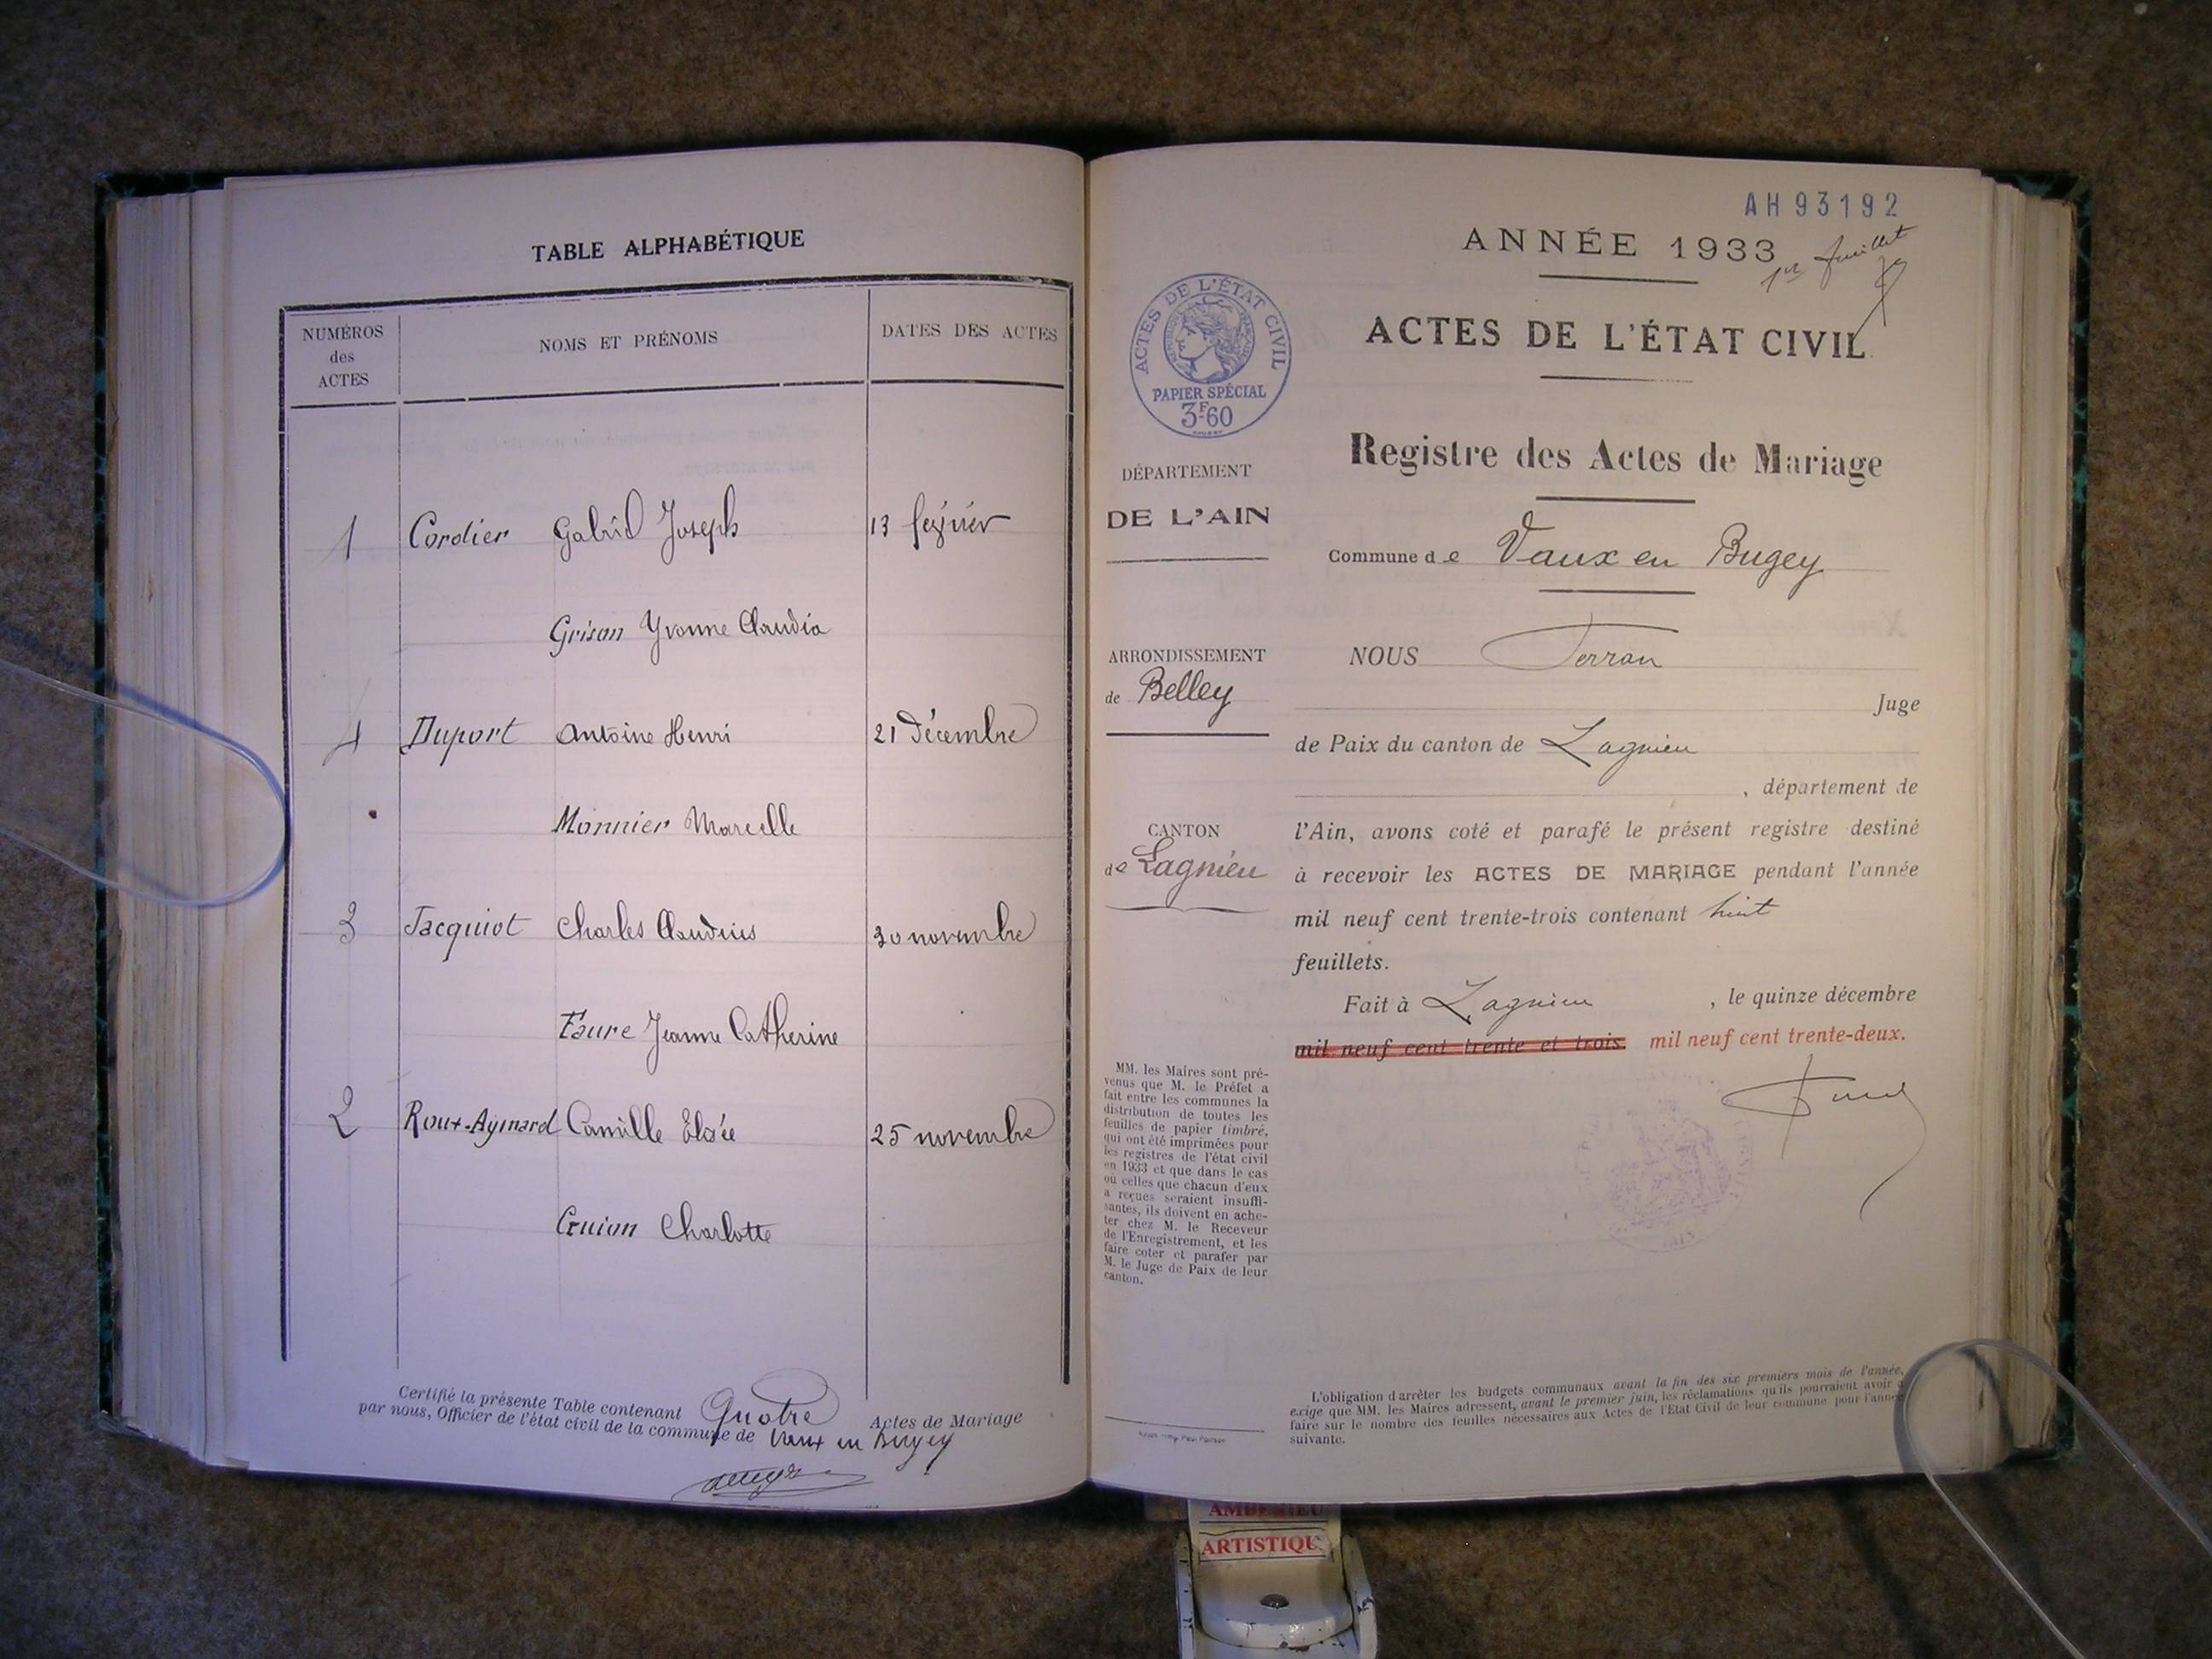 TABLE ALPHABÉTIQUE
NUMÉROS des ACTES
NOMS ET PRÉNOMS
DATES DES ACTES
1 Cordier Gabriel Joseph 13 février
Grison Yvonne Claudia
4 Duport Antoine Henri 21 Décembre
Monnier Marcelle
3 Jacquiot Charles Claudius 30 novembre
Faure Jeanne Catherine
2 Roux-Aymard Camille Elisée 25 novembre
Guion Charlotte
Certifié la présente Table contenant Quatre Actes de Mariage
par nous, Officier de l'état civil de la commune de Vaux en Bugey
AH 93192
ANNÉE 1933
1er feuillet
ACTES DE L'ÉTAT CIVIL
Registre des Actes de Mariage
Commune de Vaux en Bugey
ACTES DE L'ÉTAT CIVIL
PAPIER SPÉCIAL
3F60
DÉPARTEMENT
DE L'AIN
ARRONDISSEMENT
de Belley
CANTON
de Lagnieu
MM. les Maires sont pré-
venus que M. le Préfet a
fait entre les communes la
distribution de toutes les
feuilles de papier timbré,
qui ont été imprimées pour
les registres de l'état civil
en 1933 et que dans le cas
où celles que chacun d'eux
a reçues seraient insuffi-
santes, ils doivent en ache-
ter chez M. le Receveur
de l'Enregistrement, et les
faire coter et parafer par
M. le Juge de Paix de leur
canton.
NOUS Ferran
Juge
de Paix du canton de Lagnieu
, département de
l'Ain, avons coté et parafé le présent registre destiné
à recevoir les ACTES DE MARIAGE pendant l'année
mil neuf cent trente-trois contenant huit
feuillets.
Fait à Lagnieu , le quinze décembre
mil neuf cent trente et trois. mil neuf cent trente-deux.
L'obligation d'arrêter les budgets communaux avant la fin des six premiers mois de l'année,
exige que MM. les Maires adressent, avant le premier juin, les réclamations qu'ils pourraient avoir à
faire sur le nombre des feuilles nécessaires aux Actes de l'Etat Civil de leur commune pour l'année
suivante.
AMBERIEU
ARTISTIQU